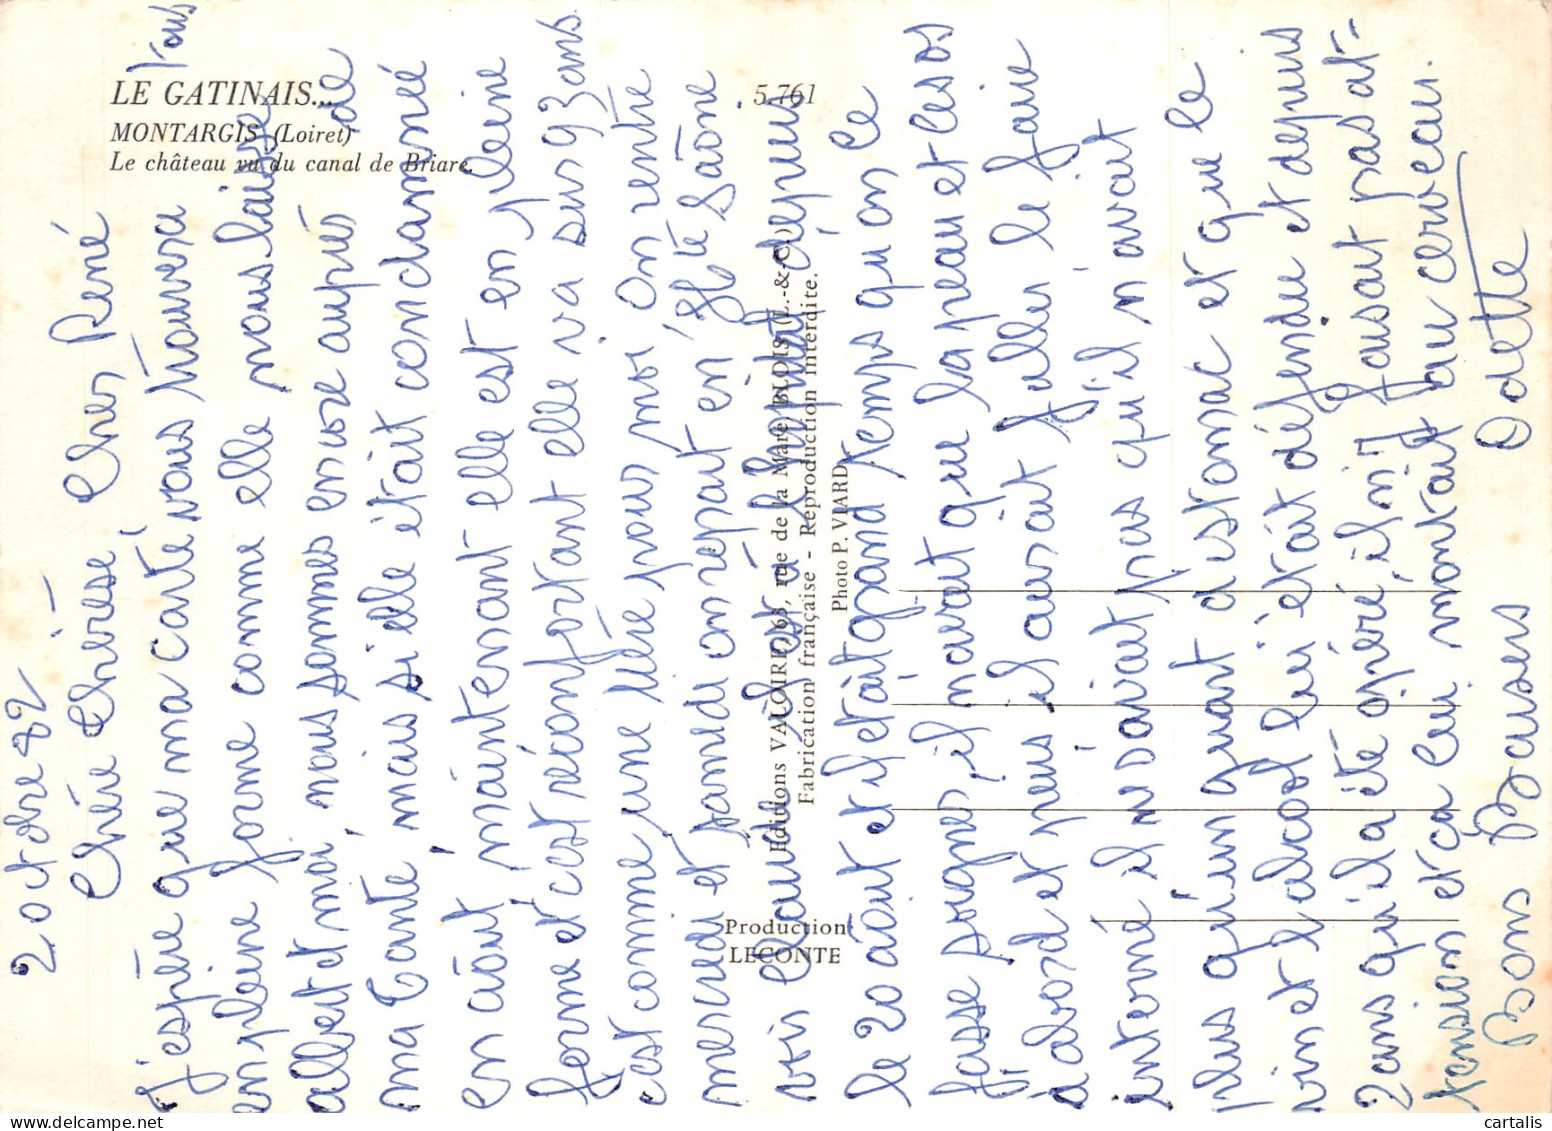 LE GATINAIS...
MONTARGIS (Loiret)
Le château vu du canal de Briare.
5.761
Editions VALOIRE, 63, rue de la Mare, BLOIS (L.-&-C.)
Fabrication française - Reproduction interdite.
Photo P. VIARD.
Production
LECONTE
2 octobre 82
Chère Therese Cher René
J'espère que ma carte vous trouvera tous
en pleine forme comme elle nous laisse
albert et moi, nous sommes encore auprès de
ma Tante, mais si elle était condamnée
en aôut maintenant elle est en pleine
forme et c'est réconfortant elle va sur 93 ans
c'est comme une Mère pour moi On rentre
mercredi et samedi on repart en Hte Saône
voir Claude il est à l'hopital depuis
le 20 aôut et il était grand temps qu'on le
fasse soigner, il n'avait que la peau et les os
d'abord et puis il aurait fallu le faire
interné il ne savait pas qu'il n'avait
plus qu'un quart d'estomac et que le
vin et l'alcool lui était défendue et depuis
2 ans qu'il a été opéré il n'y faisait pas at-
tension et ça lui montait au cerveau.
Bons Baisers Odette